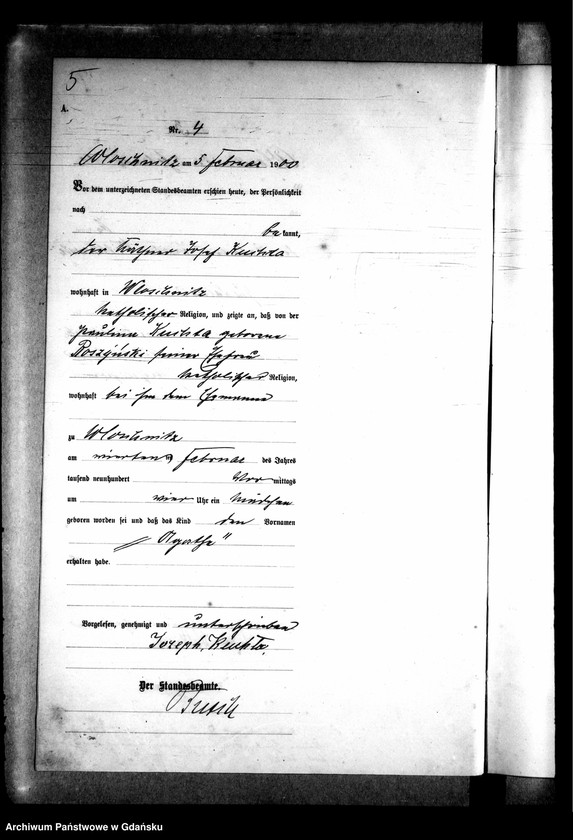 5
A.
Nr. 4
Wloschnitz am 5. Februar 1900
Vor dem unterzeichneten Standesbeamten erschien heute, der Persönlichkeit
nach
bekannt,
der Käthner Josef
wohnhaft in Wloschnitz
katholischer Religion, und zeigte an, daß von der
Pauline geborene
Roszynski seiner Ehefrau
katholischer Religion,
wohnhaft bei ihm dem Ehemanne
zu Wloschnitz
am vierten Februar des Jahres
tausend neunhundert Vormittags
um vier Uhr ein Mädchen
geboren worden sei und daß das Kind den Vornamen
„Agathe"
erhalten habe.
Vorgelesen, genehmigt und unterschrieben
Joseph
Der Standesbeamte.
Archiwum Państwowe w Gdańsku